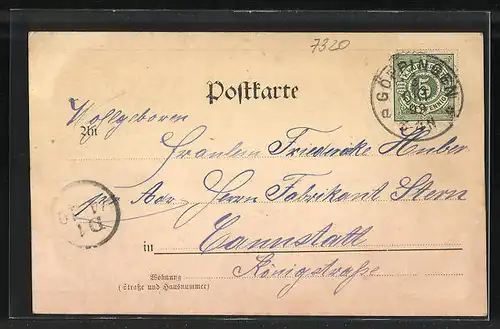 7320
GÖPPINGEN
5
Postkarte
Wohlgeboren
An
Fräulein Friedericke Huber
per Adr. Herrn Fabrikant Stern
in Cannstatt
Königstraße
Wohnung
(Straße und Hausnummer)